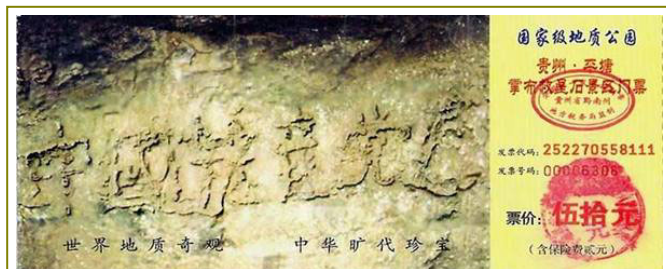 中國共產党亡
世界地质奇观 中华旷代珍宝
国家级地质公园
贵州·平塘
掌布救星石景区门票
贵州省黔南州
地方税务局监制
发票代码: 252270558111
发票号码:
票价: 伍拾元
(含保险费贰元)